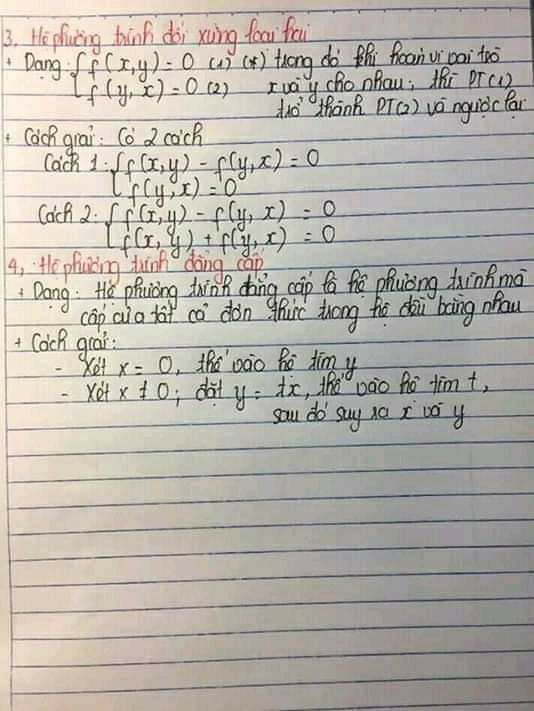 3, Hệ phương trình đối xứng loại hai
+ Dạng: { f(x,y) = 0 (1) (*) trong đó khi hoán vị vai trò
f(y,x) = 0 (2) x và y cho nhau; thì PT(1)
trở thành PT(2) và ngược lại
+ Cách giải: Có 2 cách
Cách 1: { f(x,y) - f(y,x) = 0
f(y,x) = 0
Cách 2: { f(x,y) - f(y, x) = 0
f(x, y) + f(y, x) = 0
4, Hệ phương trình đẳng cấp
+ Dạng: Hệ phương trình đẳng cấp là hệ phương trình mà
cấp của tất cả đơn thức trong hệ đều bằng nhau
+ Cách giải:
- Xét x = 0, thế vào hệ tìm y
- Xét x ≠ 0; đặt y = tx, thế vào hệ tìm t,
sau đó suy ra x và y